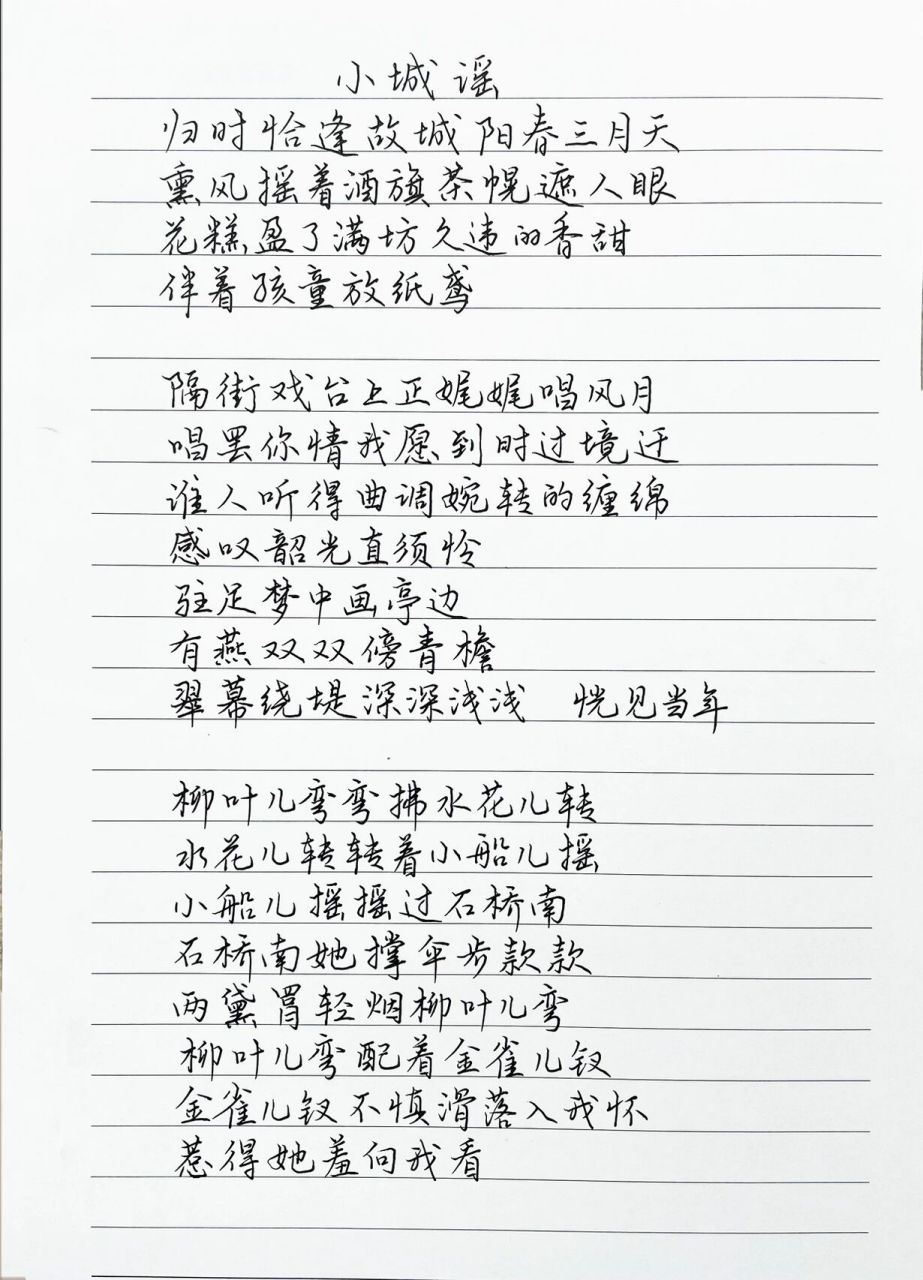 小城谣
归时恰逢故城阳春三月天
熏风摇着酒旗茶幌遮人眼
花糕盈了满坊久违的香甜
伴着孩童放纸鸢
隔街戏台上正娓娓唱风月
唱罢你情我愿到时过境迁
谁人听得曲调婉转的缠绵
感叹韶光直须怜
驻足梦中画亭边
有燕双双傍青檐
翠幕绕堤深深浅浅 恍见当年
柳叶儿弯弯拂水花儿转
水花儿转转着小船儿摇
小船儿摇摇过石桥南
石桥南她撑伞步款款
两黛罥轻烟柳叶儿弯
柳叶儿弯配着金雀儿钗
金雀儿钗不慎滑落入我怀
惹得她羞向我看